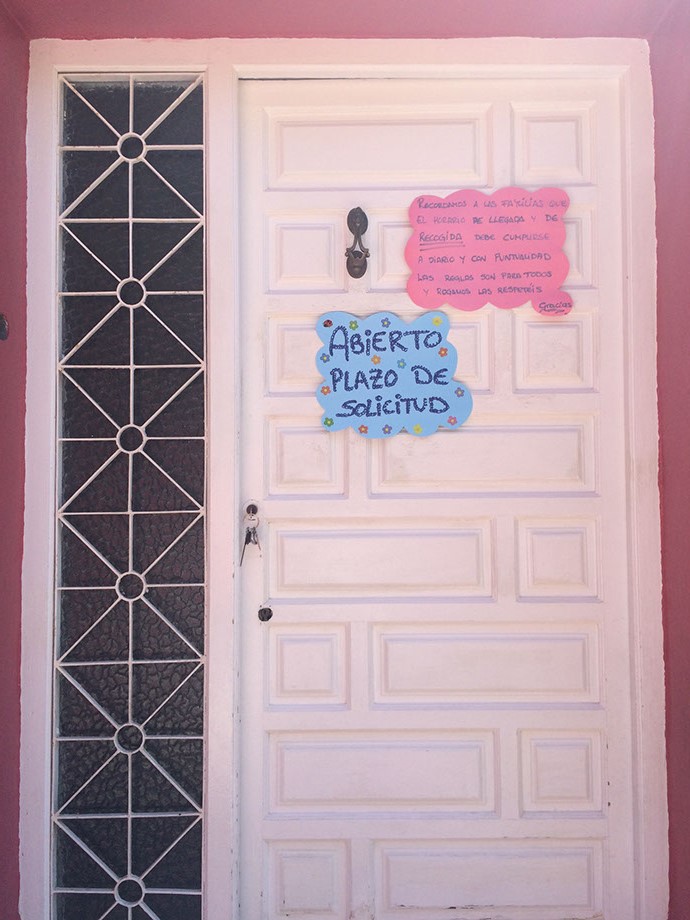 RECORDAMOS A LAS FAMILIAS QUE
EL HORARIO DE LLEGADA Y DE
RECOGIDA DEBE CUMPLIRSE
A DIARIO Y CON PUNTUALIDAD
LAS REGLAS SON PARA TODOS
Y ROGAMOS LAS RESPETEIS
GRACIAS
ABIERTO
PLAZO DE
SOLICITUD